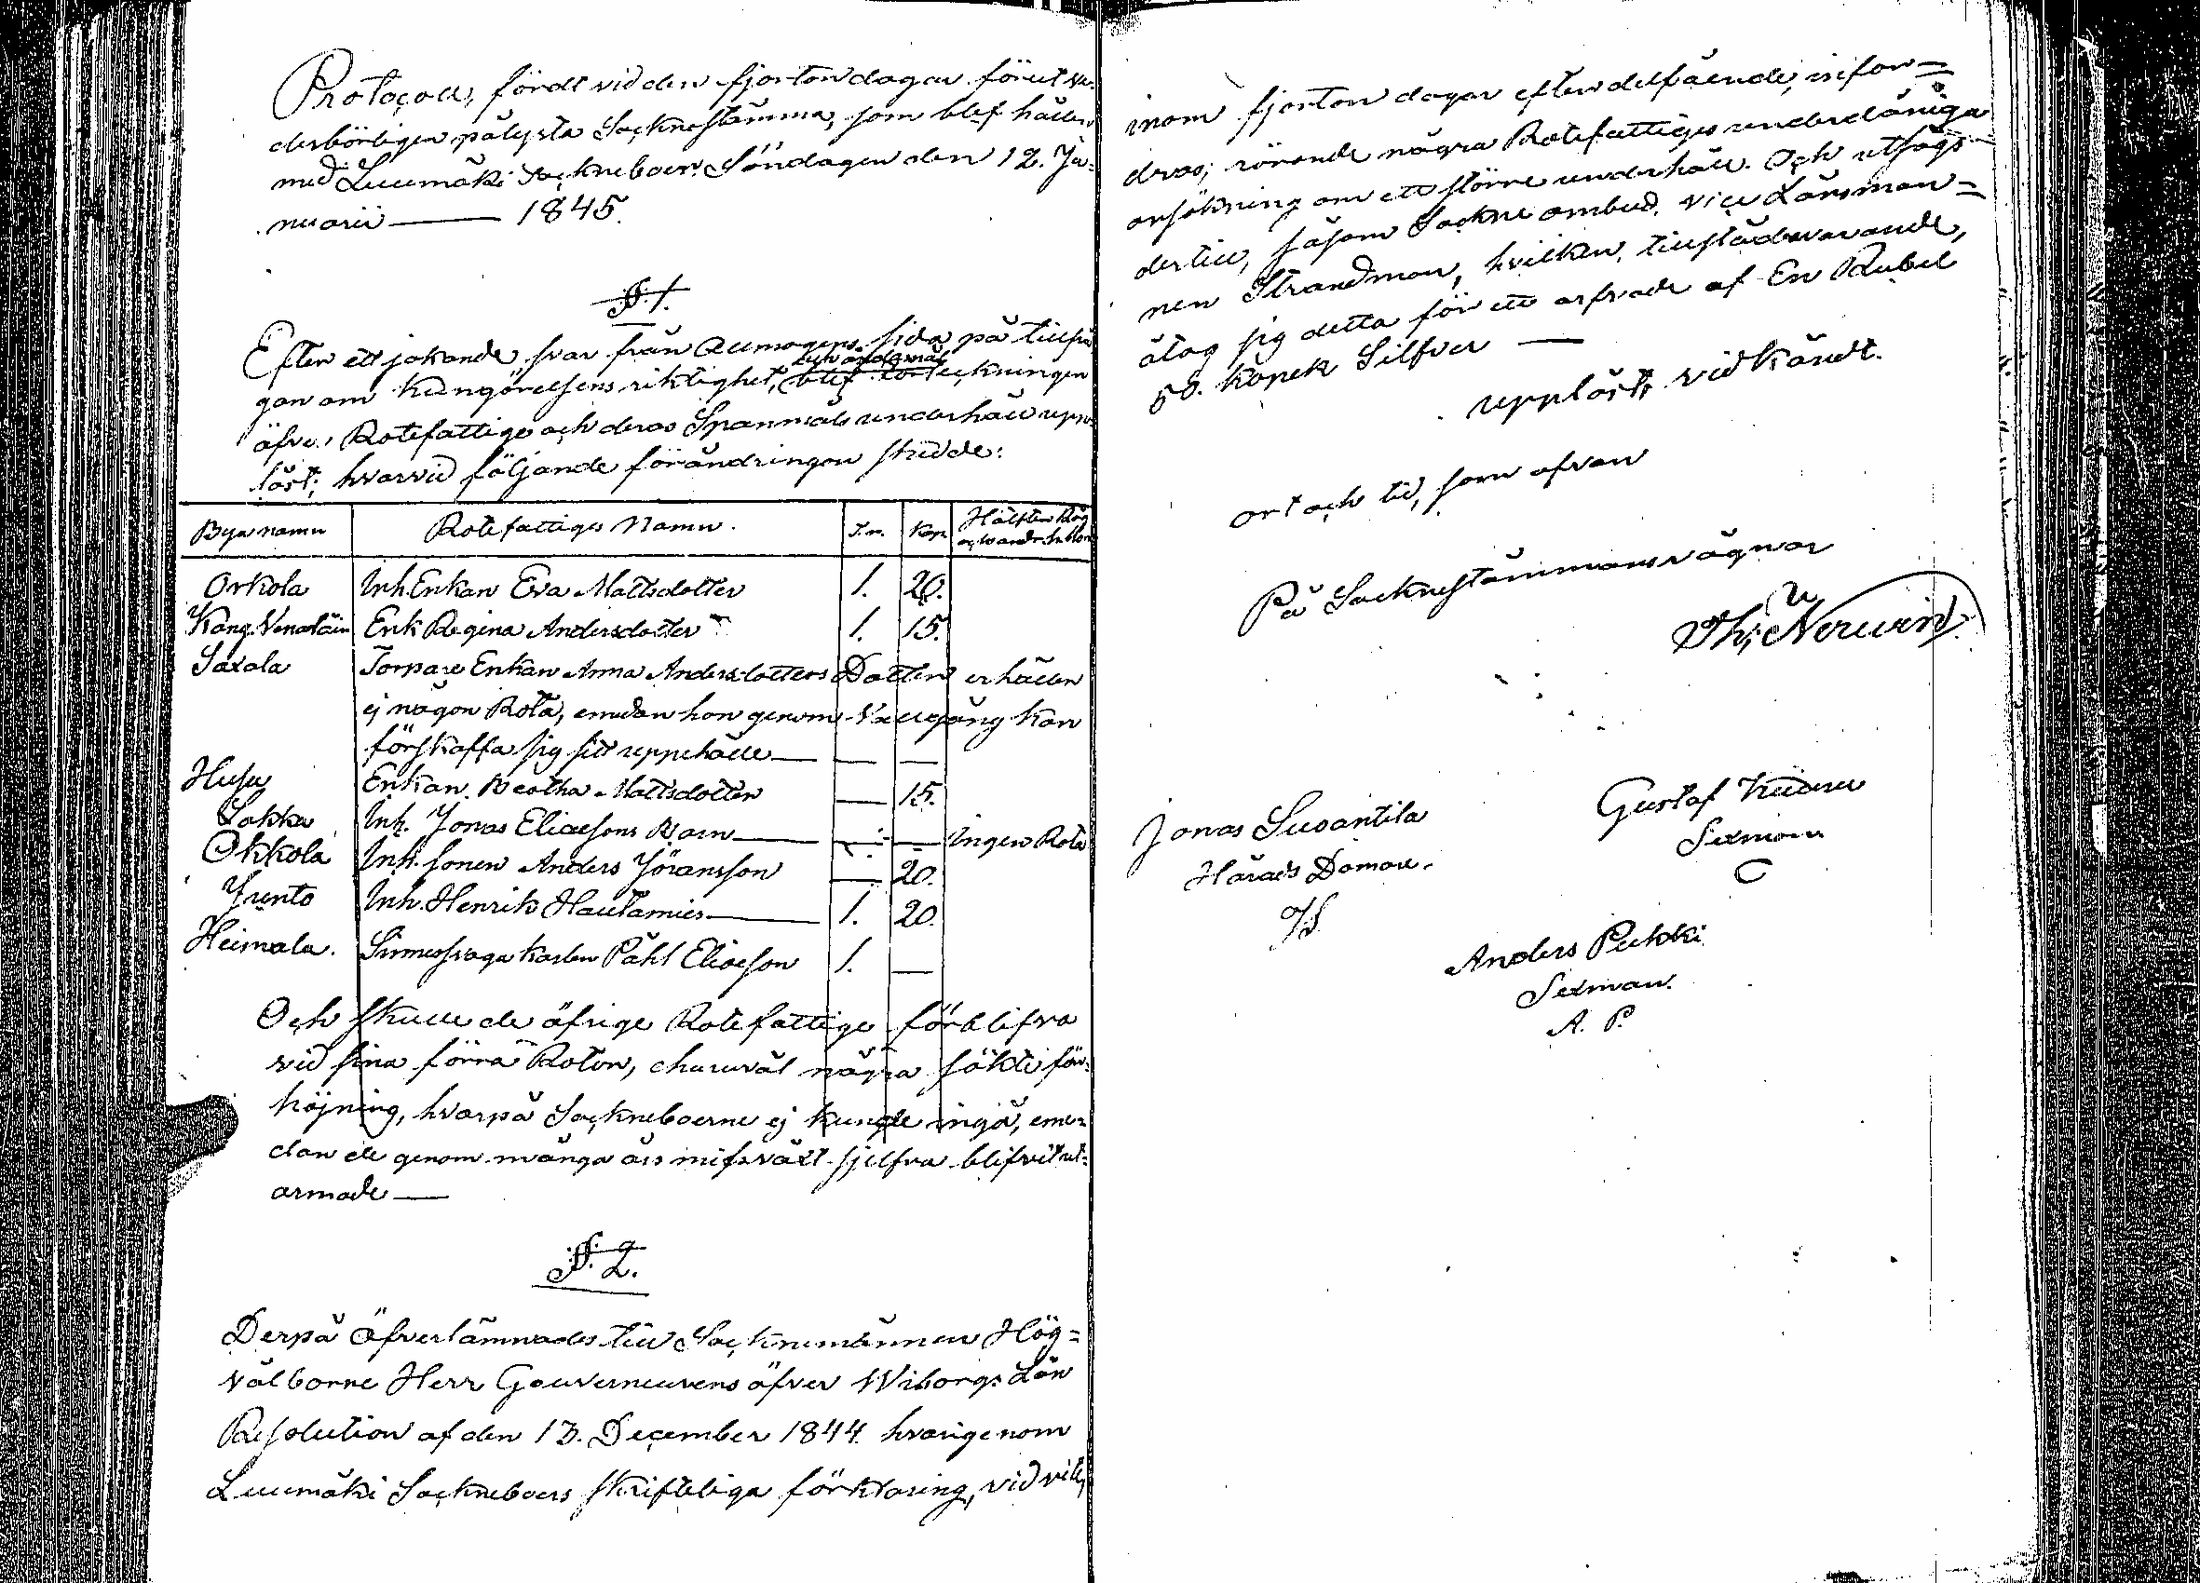 Protocoll, fördt vid den fjorton dagar förut ve-
derbörligen pålysta Socknestämma, som blef hållen
med Luumäki Sockneboer Söndagen den 12. Ja-
nuarii — 1845.
§ 1.
Efter ett jakande svar från Allmogens sida på tillfrå
gan om kungörelsens riktighet, blef förteckningen
äfver Rotefattige och deras Spannmåls underhåll upp-
läst; hvarvid följande förändringar skedde:
Byanamn Rotefattiges Namn. Tn. Kap. Hälften Råg
Orkola Inh. Enkan Eva Mattsdotter 1. 20.
Kang. Venäläin Enk Regina Andersdotter 1. 15.
Saxala Torpare Enkan Anna Andersdotters Dotter erhåller
ej någon Rota, emedan hon genom Vallgång kan
förskaffa sig sitt uppehälle — — —
Husu Enkan Beatha Mattsdotter — 15.
Sakka Inh. Jonas Eliaesons Barn — — — Ingen Rote
Okkola Inh. Sonen Anders Jöransson — 20.
Yrentö Inh. Henrik Hautamies — 1. 20.
Heimala. Sinnessvaga Karlen Påhl Eliaeson 1. —
Och skulle de äfrige Rotefattige förblifva
vid sina förra Rotor, churuväl några sökte för-
höjning, hvarpå Sockneboerne ej kunde ingå, eme-
dan de genom många års missväxt sjelfva blifvit ut-
armade —
§. 2.
Derpå Öfverlämnades till Socknemännen Hög=
välborne Herr Gouverneurens öfver Wiborgs Län
Resolution af den 13. December 1844. hvarigenom
Luumäki Sockneboers skriftliga förklaring, vid vite,
inom fjorton dagar efter delfående, infor=
dras; rörande några Rotefattiges underdåniga
ansökning om ett större underhåll. Och utsågs
dertill, såsom Sockne ombud, vice Länsman=
nen Strandman, hvilken, tillstädesvarande,
åtog sig detta för ett arfvode af En Rubel
50. Kopek Silfver —
uppläst, vidkändt.
ort och tid, som ofvan
På Socknestämmans vägnar
Jonas Suoantila
Härads Domare.
Gustaf
Sexman
Anders Pukki
Sexman.
A. P.